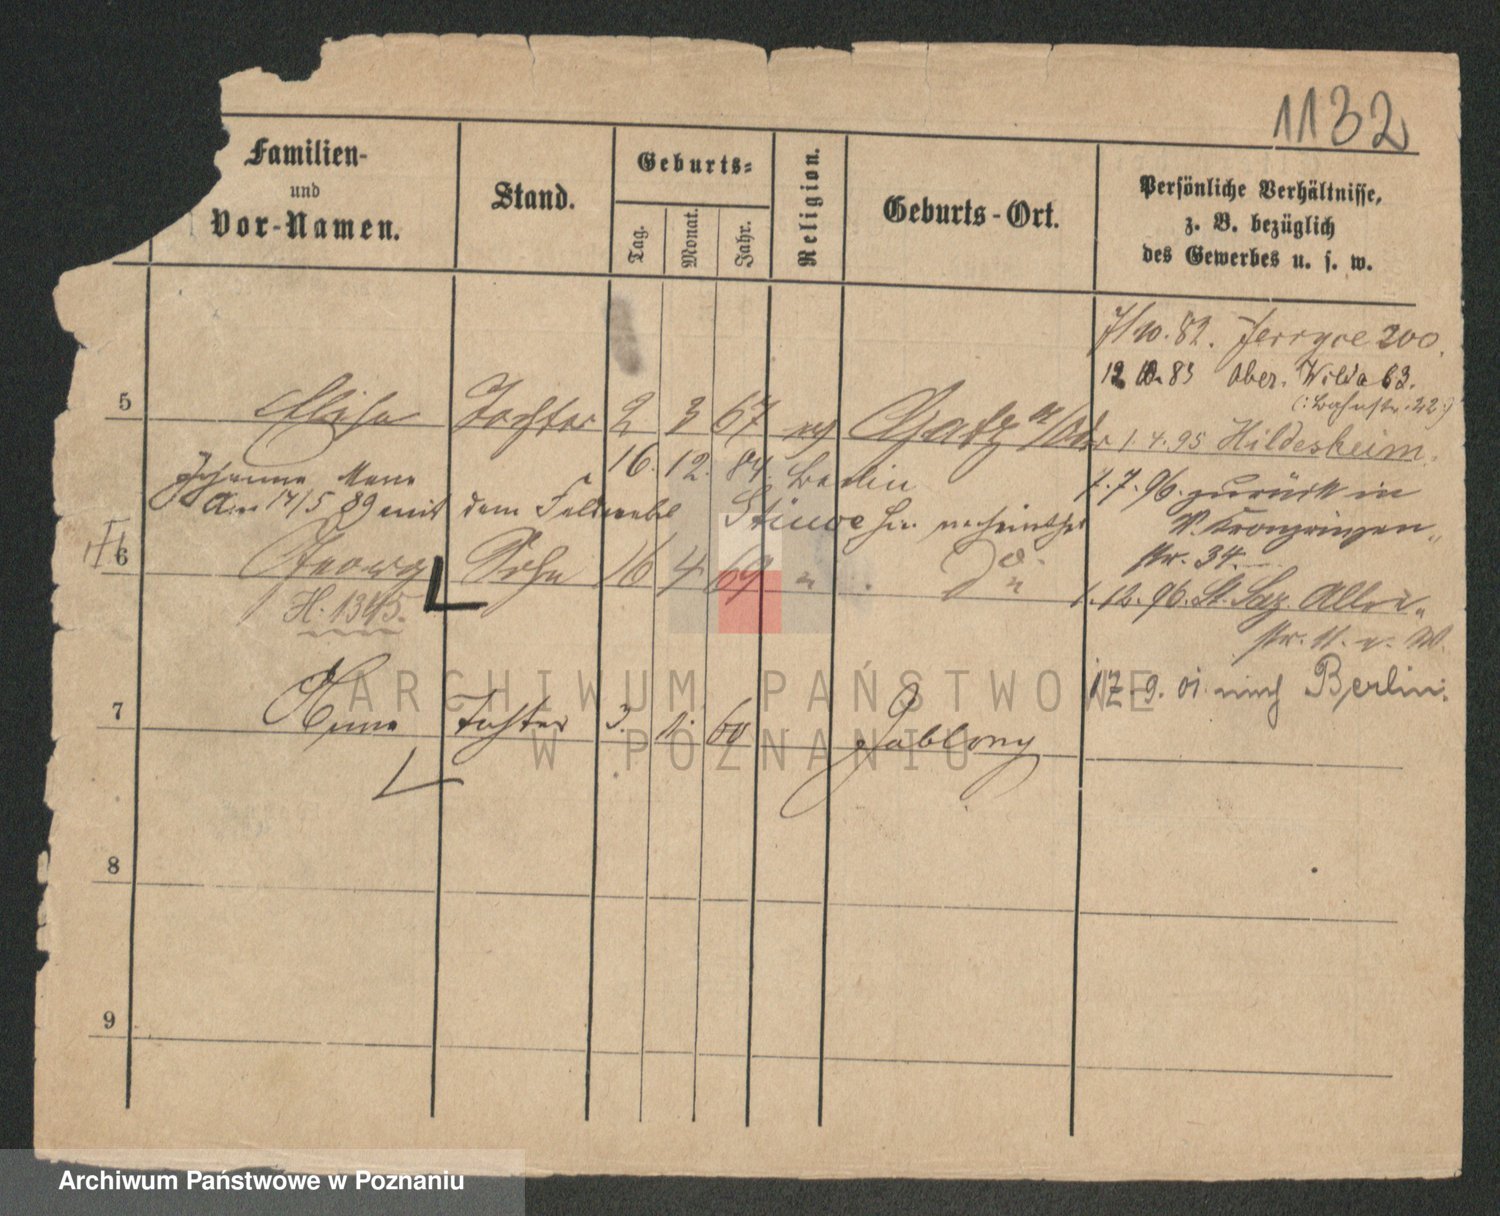 1132
Familien-
und
Vor-Namen.
Stand.
Geburts-
Tag.
Monat.
Jahr.
Religion.
Geburts-Ort.
Persönliche Verhältnisse,
z. B. bezüglich
des Gewerbes u. s. w.
7/10. 82. Jerzyce 200.
12 10. 83 Ober. Wilda 63.
5 Elise Tochter 2 3 67 ev /Oder
1 4. 95 Hildesheim.
16. 12. 84. Berlin
7. 7. 96. zurück in
Am 14/5 89 mit dem Feldwebel Stüwe
Kronprinzen-
str. 34.
6 Georg Sohn 16 4 69 "
H. 1345.
1. 12. 96. St. Laz.
str. 11.
17. 9. 01. nach Berlin.
7 Tochter 3. 1. 60 Jablony
8
9
ARCHIWUM PAŃSTWOWE
W POZNANIU
Archiwum Państwowe w Poznaniu